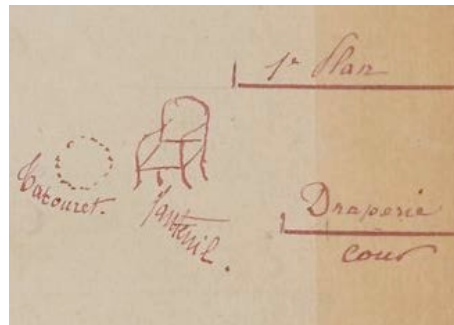 1er Plan
Tabouret.
Fauteuil.
Draperie
cour